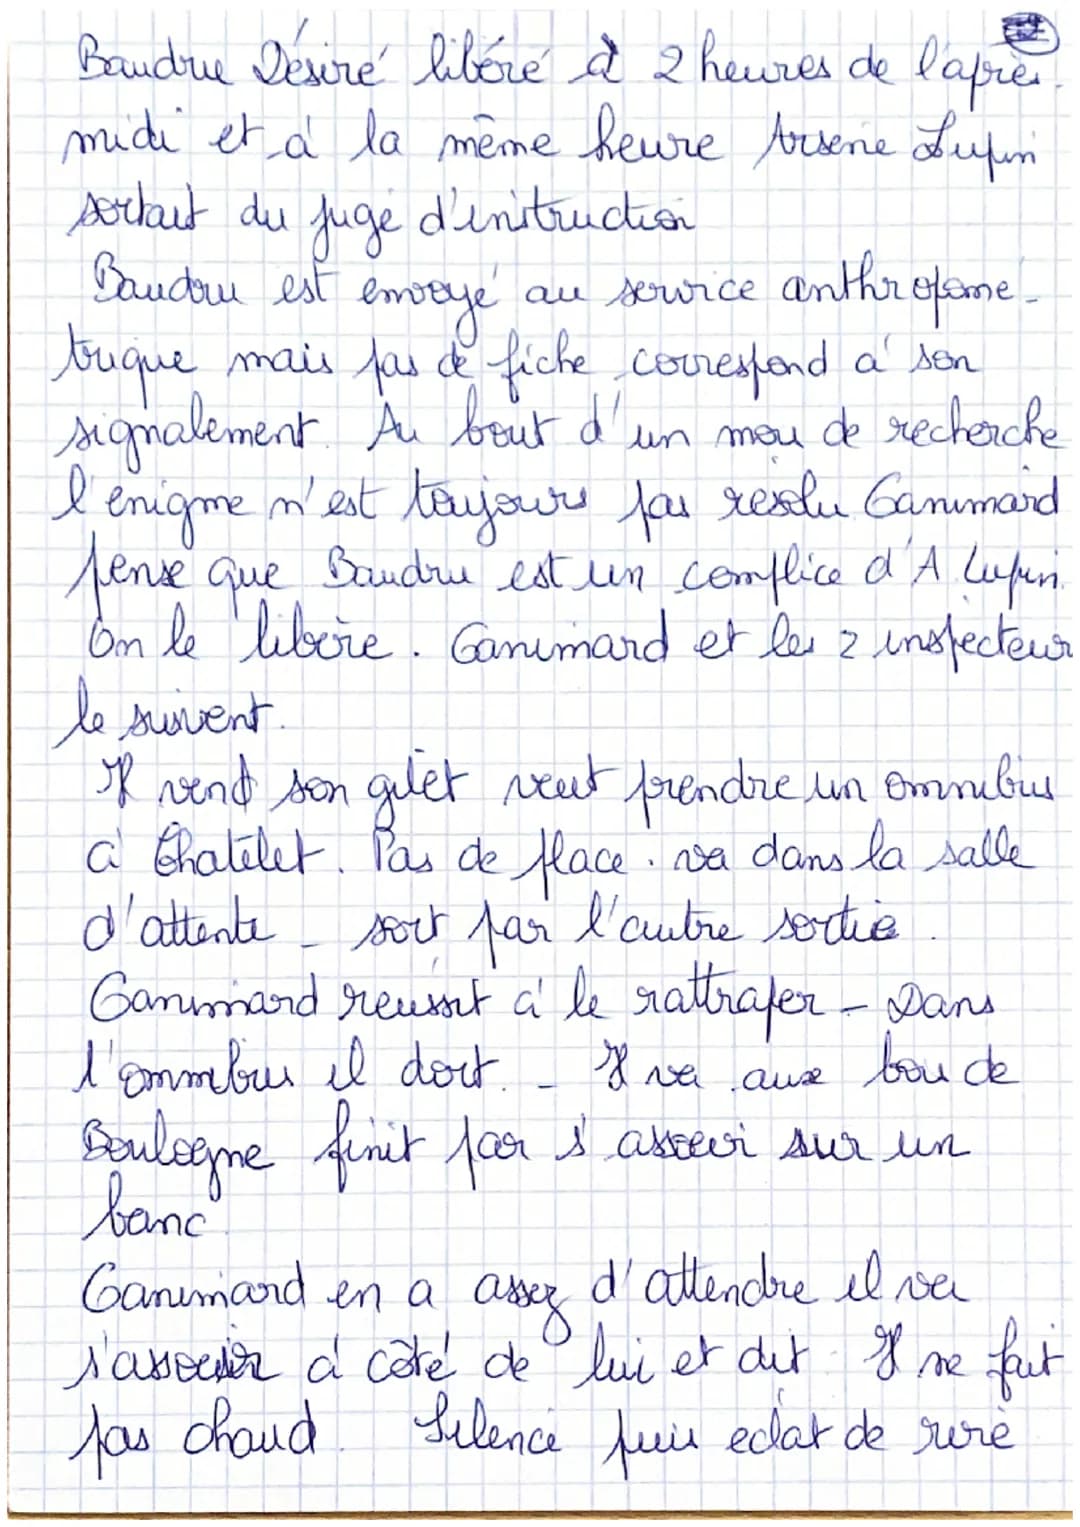 Baudru Désiré libéré à 2 heures de l'après-
midi et à la même heure Arsene Lupin
sortait du juge d'instruction
Baudru est envoyé au service anthropomé-
trique mais pas de fiche correspond à son
signalement. Au bout d'un mois de recherche
l'enigme n'est toujours pas résolu Ganimard
pense que Baudru est un complice d'A Lupin.
On le libère. Ganimard et les 2 inspecteur
le suivent.
Il vend son gilet veut prendre un omnibus
à Chatelet. Pas de place. va dans la salle
d'attente - sort par l'autre sortie.
Ganimard réussit à le rattraper - Dans
l'omnibus il dort. - Il va aux bois de
Boulogne finit par s'asseoir sur un
banc.
Ganimard en a assez d'attendre il va
s'asseoir à côté de lui et dit. Il ne fait
pas chaud. Silence puis eclat de rire